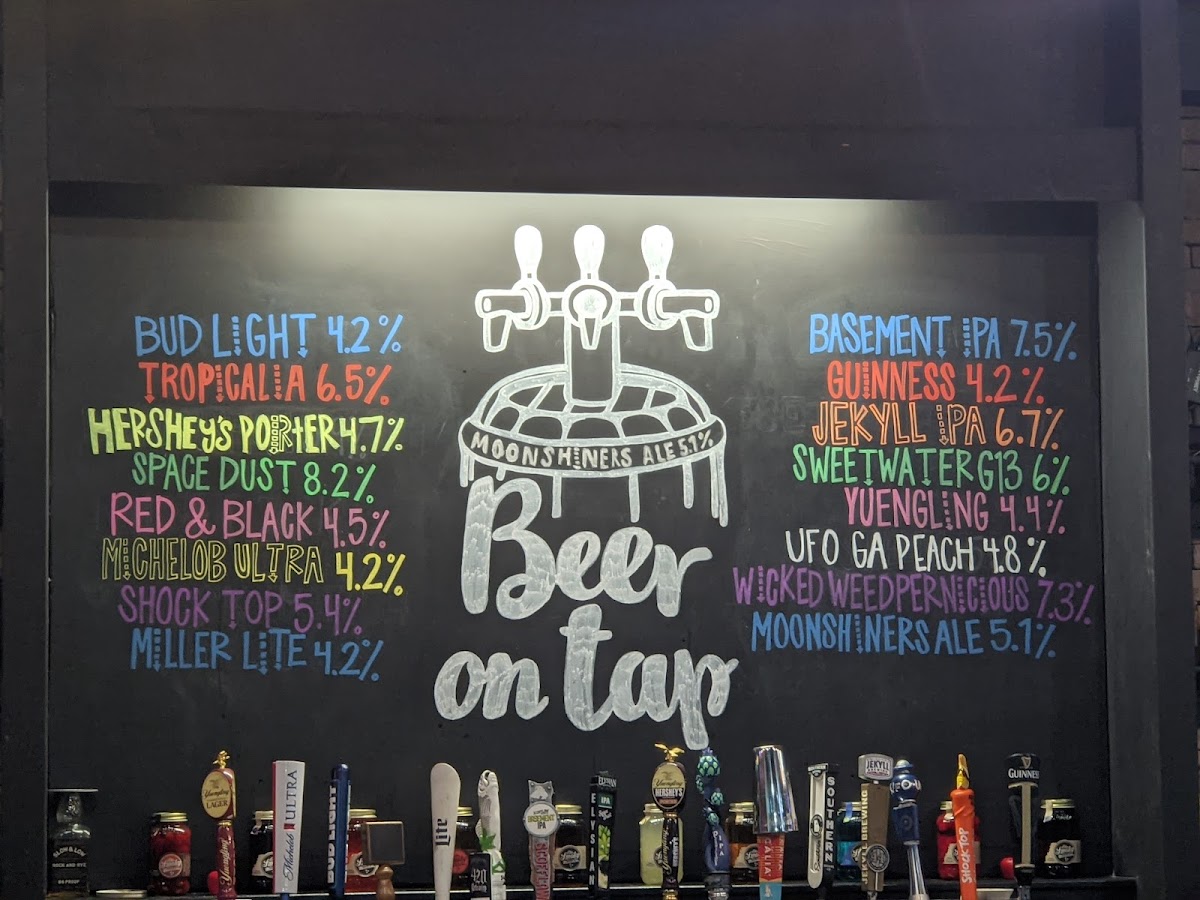 BUD LIGHT 4.2%
TROPICALIA 6.5%
HERSHEY'S PORTER 4.7%
SPACE DUST 8.2%
RED & BLACK 4.5%
MICHELOB ULTRA 4.2%
SHOCK TOP 5.4%
MILLER LITE 4.2%
MOONSHINERS ALE 5.1%
Beer
on tap
BASEMENT IPA 7.5%
GUINNESS 4.2%
JEKYLL IPA 6.7%
SWEETWATER G13 6%
YUENGLING 4.4%
UFO GA PEACH 4.8%
WICKED WEED PERNICIOUS 7.3%
MOONSHINERS ALE 5.1%
SLOW & LOW
ROCK AND RYE
Yuengling
LAGER
Yuengling
Michelob ULTRA
BUD LIGHT
Lite
420
IPA
ELYSIAN
Yuengling
HERSHEY'S
SOUTHERN
JEKYLL
BREWING
JEKYLL
SHOCK TOP
GUINNESS